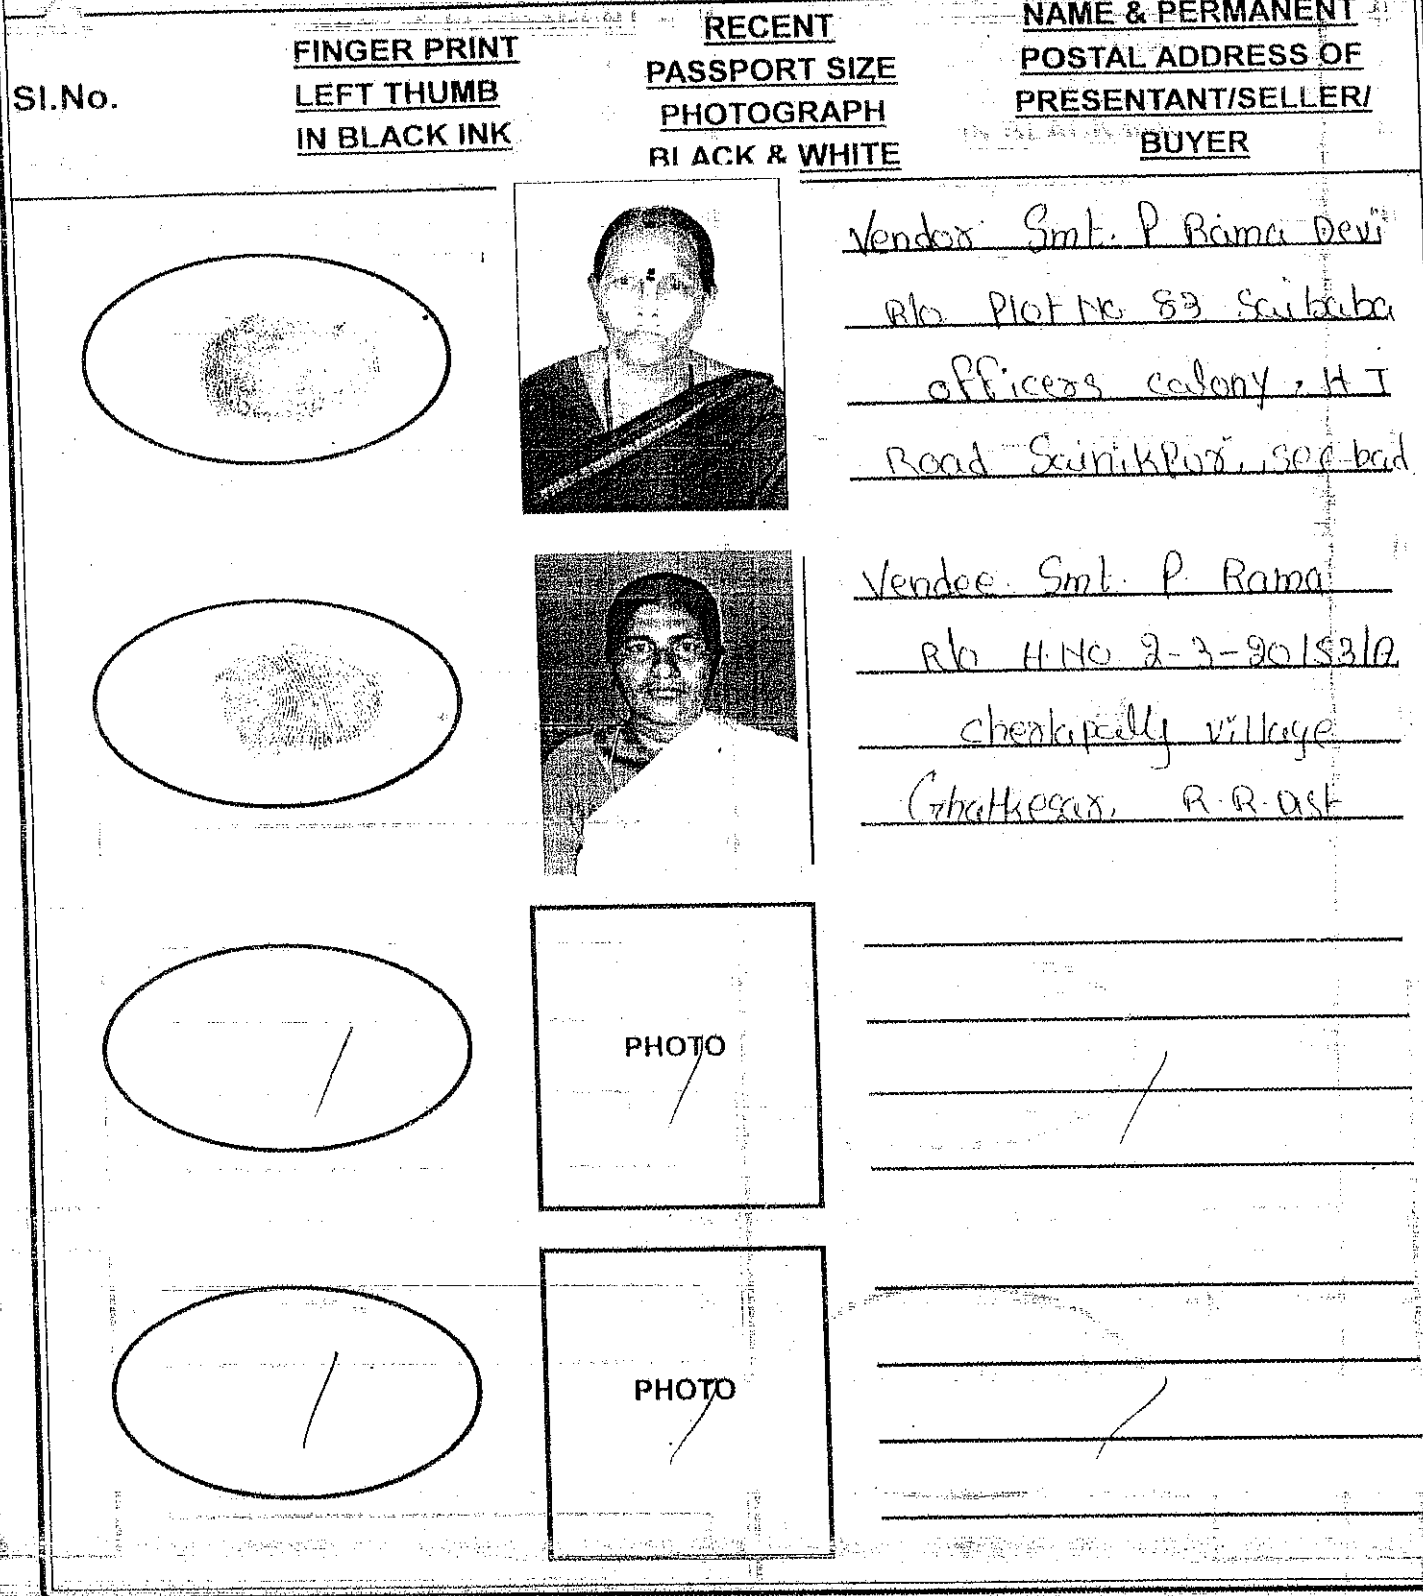 Sl.No.
FINGER PRINT
LEFT THUMB
IN BLACK INK
RECENT
PASSPORT SIZE
PHOTOGRAPH
BLACK & WHITE
NAME & PERMANENT
POSTAL ADDRESS OF
PRESENTANT/SELLER/
BUYER
Vendor Smt. P Rama Devi
R/o Plot No 83 Saibaba
officers colony, H T
Road Sainikpur, sec-bad
Vendee. Smt. P. Rama
R/o H.NO 2-3-20/53/A
cherlapally village
Ghatkesar, R.R. Dist
PHOTO
PHOTO